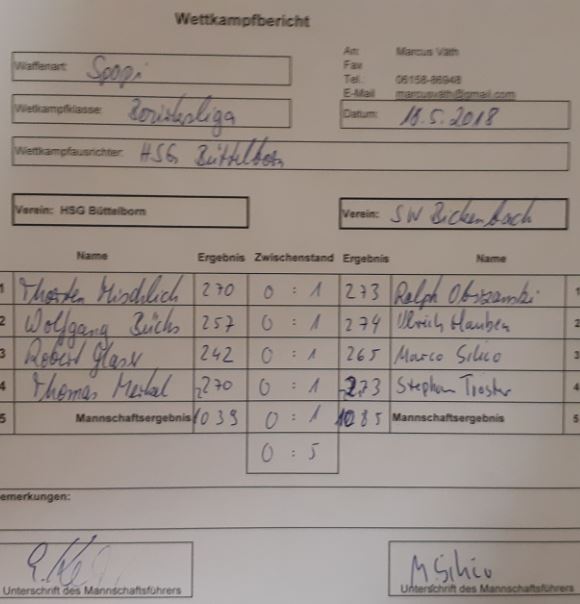 Wettkampfbericht
Waffenart: Spopi
An: Marcus Väth
Fax
Tel.: 06158-86948
E-Mail marcusväth@gmail.com
Wettkampfklasse: Bezirksliga
Datum: 18.5.2018
Wettkampfausrichter: HSG Büttelborn
Verein: HSG Büttelborn
Verein: SW Bickenbach
Name Ergebnis Zwischenstand Ergebnis Name
1 Thorsten Mischlich 270 0 : 1 273 Ralph 1
2 Wolfgang Büchs 257 0 : 1 274 Ulrich Hauben 2
3 Robert Glaser 242 0 : 1 265 Marco Silico 3
4 Thomas Merkel 270 0 : 1 273 Stephan Troster 4
5 Mannschaftsergebnis 1039 0 : 1 1085 Mannschaftsergebnis 5
0 : 5
emerkungen:
M Silico
Unterschrift des Mannschaftsführers
Unterschrift des Mannschaftsführers